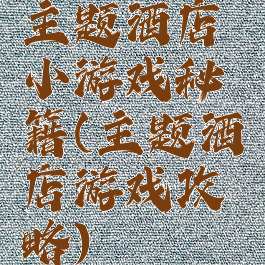 主题酒店
小游戏秘
籍(主题酒
店游戏攻
略)